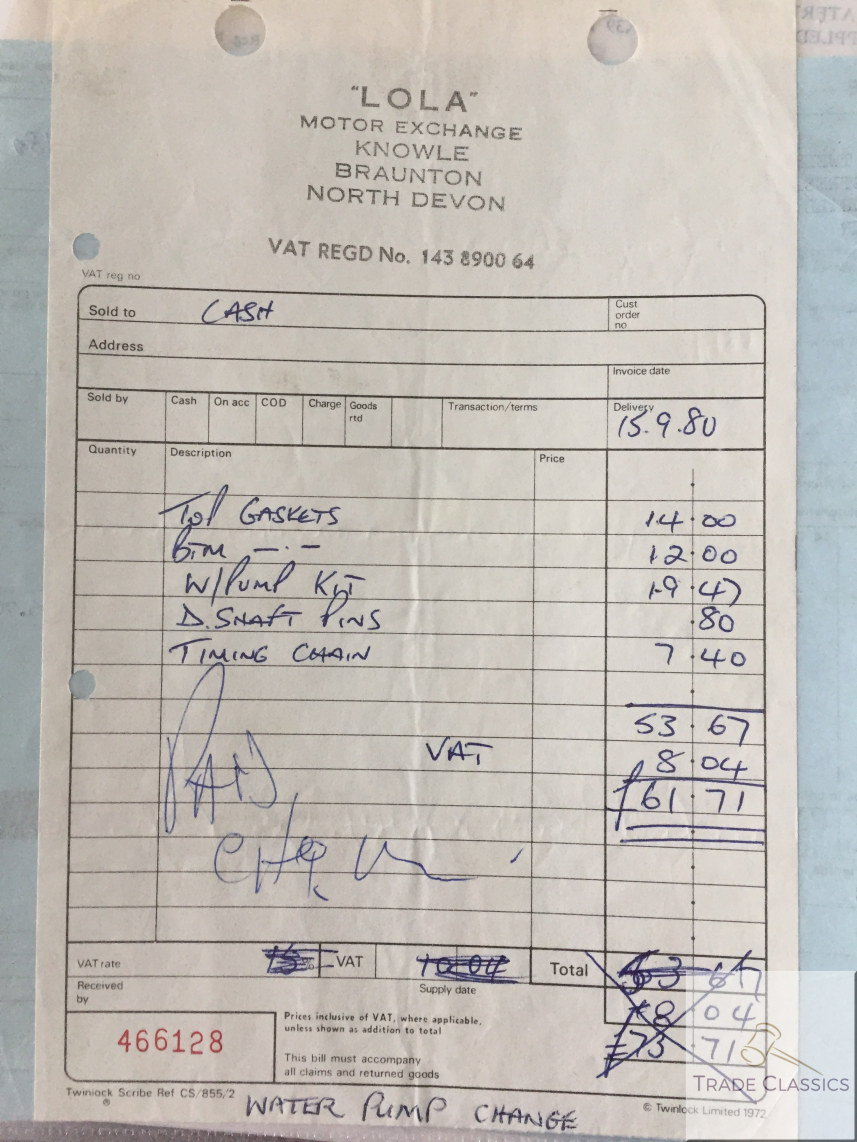 "LOLA"
MOTOR EXCHANGE
KNOWLE
BRAUNTON
NORTH DEVON
VAT REGD No. 143 8900 64
VAT reg no
Sold to CASH
Cust order no
Address
Invoice date
Sold by Cash On acc COD Charge Goods rtd Transaction/terms Delivery
15.9.80
Quantity Description Price
Top GASKETS 14.00
BTM —·— 12.00
W/PUMP KIT 19.47
D. SHAFT PINS .80
TIMING CHAIN 7.40
53.67
VAT 8.04
£61.71
PAID
CHQ
VAT rate 15% VAT 10 04 Total 63 67
Supply date
Received by
8 04
£73.71
Prices inclusive of VAT, where applicable,
unless shown as addition to total
466128
This bill must accompany
all claims and returned goods
TRADE CLASSICS
Twinlock Scribe Ref CS/855/2
© Twinlock Limited 1972
WATER PUMP CHANGE